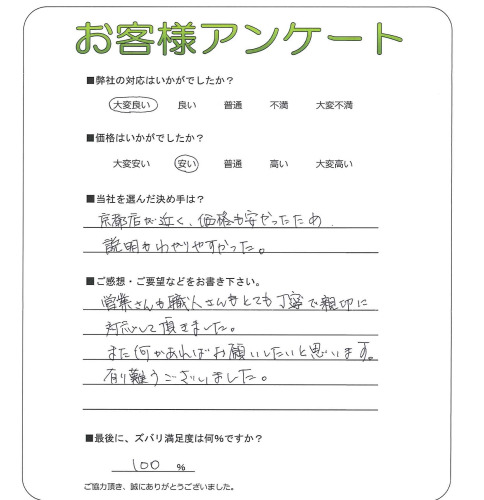 お客様アンケート
■弊社の対応はいかがでしたか？
大変良い 良い 普通 不満 大変不満
■価格はいかがでしたか？
大変安い 安い 普通 高い 大変高い
■当社を選んだ決め手は？
京都店が近く、価格も安かったため
説明もわかりやすかった。
■ご感想・ご要望などをお書き下さい。
営業さんも職人さんもとても丁寧で親切に
対応して頂きました。
また何かあればお願いしたいと思います。
有り難うございました。
■最後に、ズバリ満足度は何％ですか？
100 ％
ご協力頂き、誠にありがとうございました。